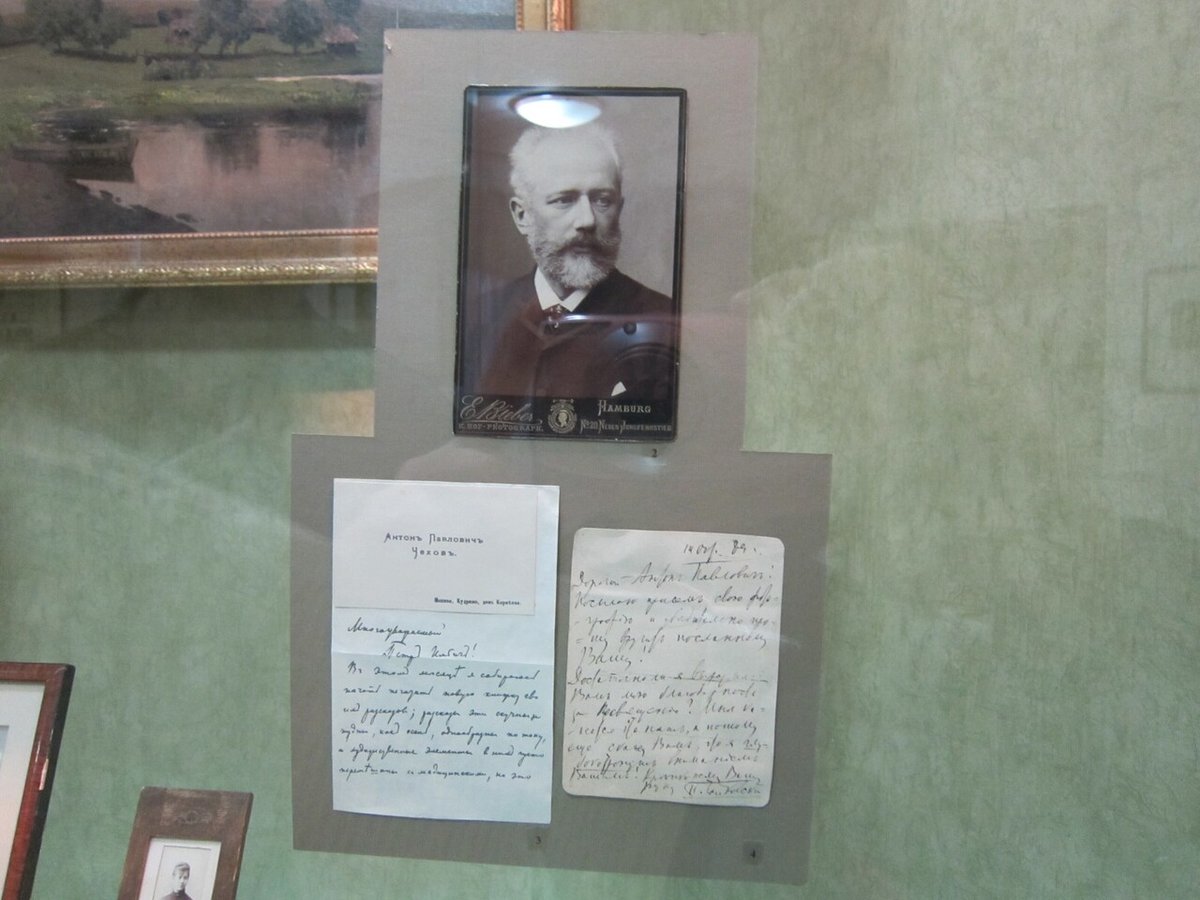 E. Bieber
K. HOF-PHOTOGRAPH.
HAMBURG
No. 20 NEUER JUNGFERNSTIEG
2
Антонъ Павловичъ
Чеховъ.
Москва, Кудрино, домъ Корнѣева.
Многоуважаемый
Петръ Ильичъ!
Въ этомъ мѣсяцѣ я собираюсь
начать печатать новую книжку сво
ихъ разсказовъ; разсказы эти скучны и
нудны, как осень, однообразны по тону,
и художественные элементы в нихъ густо
перемѣшаны с медицинскими, но это
3
14 Окт. 89 г.
Дорогой Антонъ Павловичъ!
Посылаю присемъ свою фото-
прошу вручить посланному
Вашу!
Достаточно ли я
Вамъ мою
за посвященіе? Мнѣ ка-
жется что нѣтъ, а потому
еще скажу Вамъ, что я глу-
боко тронутъ вниманіемъ
Вашимъ! Крепко жму Вашу
руку П. Чайковскій
4